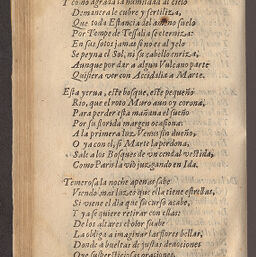 Y como agrada la humildad al cielo
De manera le cubre y fertiliza,
Que toda Estancia del ameno suelo
Por Tempe de Tessalia se eterniza:
En sus sotos jamas sonoros al yelo
Se peyna el Sol, ni su cabello enriza,
Aunque por dar a algun Vulcano parte
Quisiera ver con Accidalia a Marte.
Esta yerua, este bosque, este pequeño
Rio, que el roto Muro aun oy corona,
Para perder esta mañana el sueño
Por su florida margen ocasiona:
A la primera luz Venus sin dueño,
O ya con el, si Marte la perdona,
Sale a los Bosques de vn cendal vestida,
Como Paris la vio juzgando en Ida,
Temerosa la noche apenas sabe
Viendo mas luz, es que ella tiene estrellas,
Si viene el dia que su curso acabe,
Y ya se quiere retirar con ellas:
De los altares olor suaue
La obliga a imaginar las flores bellas,
Donde a bueltas de justas deuociones
Que suben